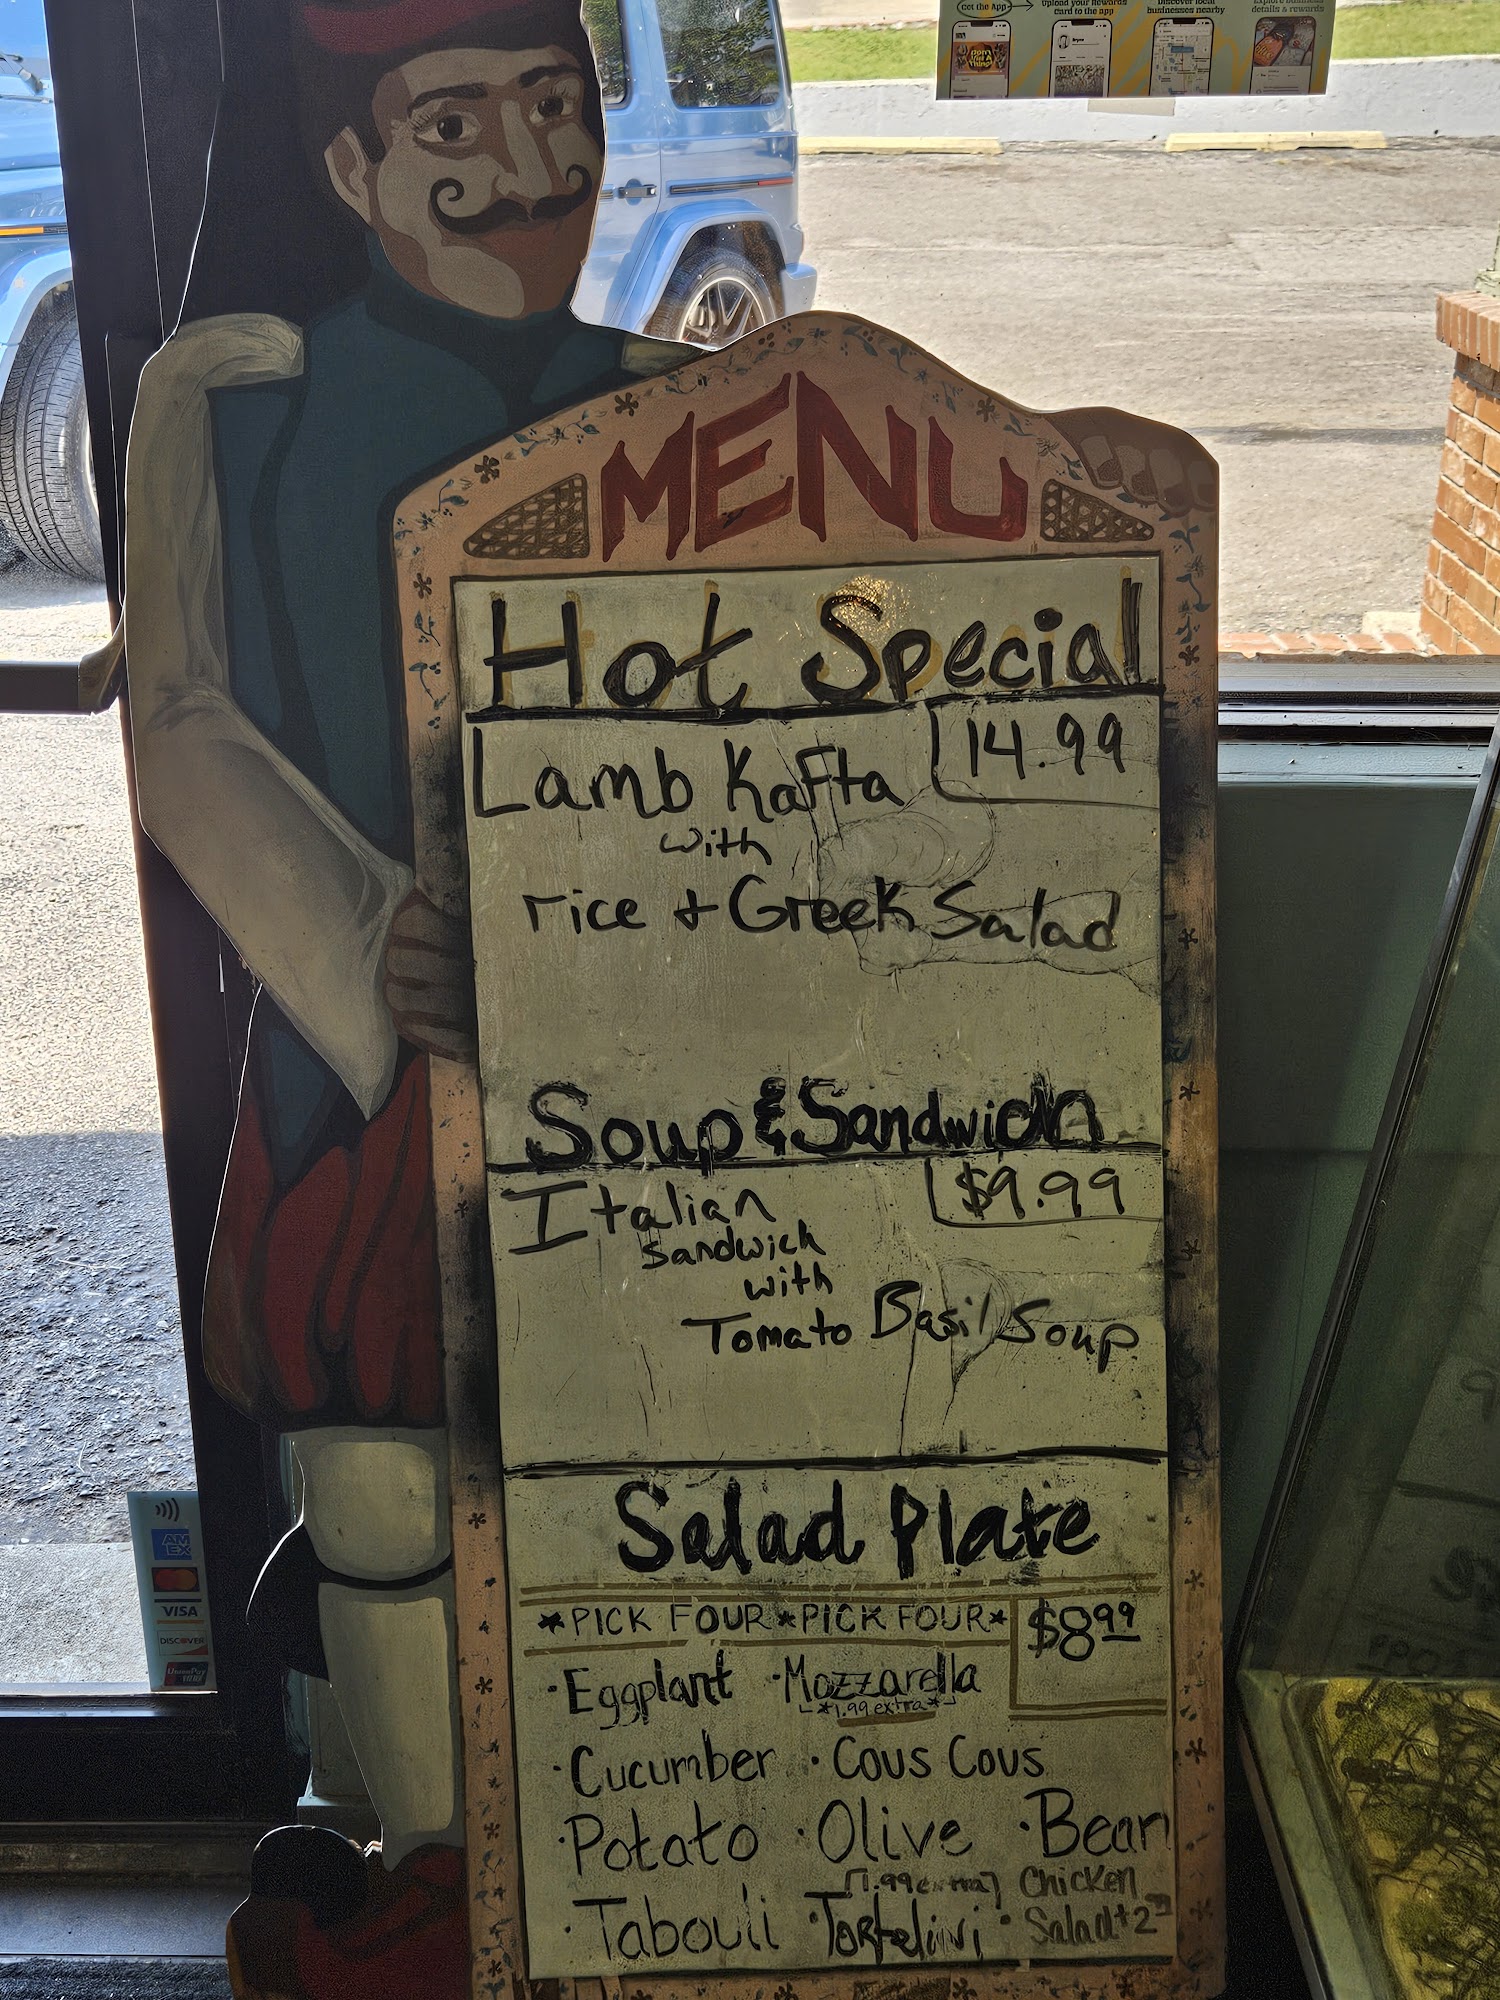 Get the App
Upload your Rewards
Card to the app
Discover local
businesses nearby
Explore business
details & rewards
MENU
Hot Special
Lamb Kafta 14.99
with
rice + Greek Salad
Soup & Sandwich
Italian $9.99
Sandwich
with
Tomato Basil Soup
Salad Plate
*PICK FOUR*PICK FOUR* $8.99
·Eggplant ·Mozzarella
*1.99 extra*
·Cucumber ·Cous Cous
·Potato ·Olive ·Bean
·Tabouli ·Tortelini
[1.99 extra]
·Chicken
Salad +2
AM
EX
VISA
DISCOVER
UnionPay